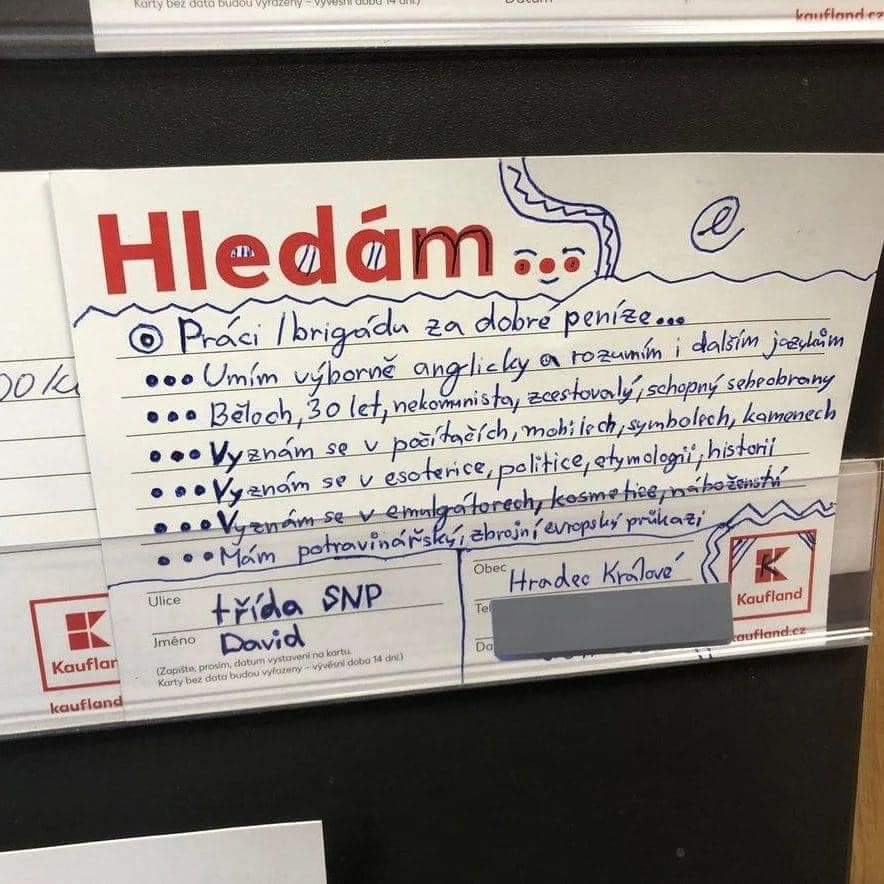 Karty bez data budou vyřazeny – vývěsní doba 14 dní.)
kaufland.cz
Hledám...
Práci / brigádu za dobré peníze...
... Umím výborně anglicky a rozumím i dalším jazykům
... Běloch, 30 let, nekomunista, zcestovalý, schopný sebeobrany
... Vyznám se v počítačích, mobilech, symbolech, kamenech
... Vyznám se v esoterice, politice, etymologii, historii
... Vyznám se v emulgátorech, kosmetice, náboženství
... Mám potravinářský, zbrojní evropský průkazi
Ulice třída SNP
Jméno David
(Zapište, prosím, datum vystavení na kartu.
Karty bez data budou vyřazeny – vývěsní doba 14 dní.)
Obec Hradec Králové
Tel
Da
K
Kaufland
kaufland.cz
Kauflan
kaufland